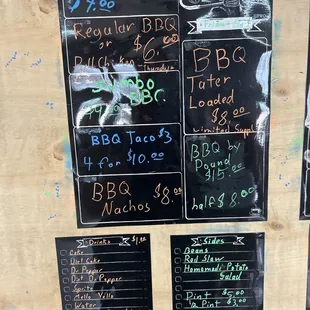 $7.00
Regular BBQ
or $6.00
Pull Chicken
Jumbo
BBQ
BBQ Taco $3
4 for $10.00
BBQ
Nachos $8.00
BBQ
Tater
Loaded
$8.00
Limited Supply
BBQ by
Pound
$15.00
half $8.00
Drinks $1.00
Coke
Diet Coke
Dr. Pepper
Diet Dr Pepper
Sprite
Mello Yello
Water
Sides
Beans
Red Slaw
Homemade Potato
Salad
Pint $5.00
½ Pint $3.00